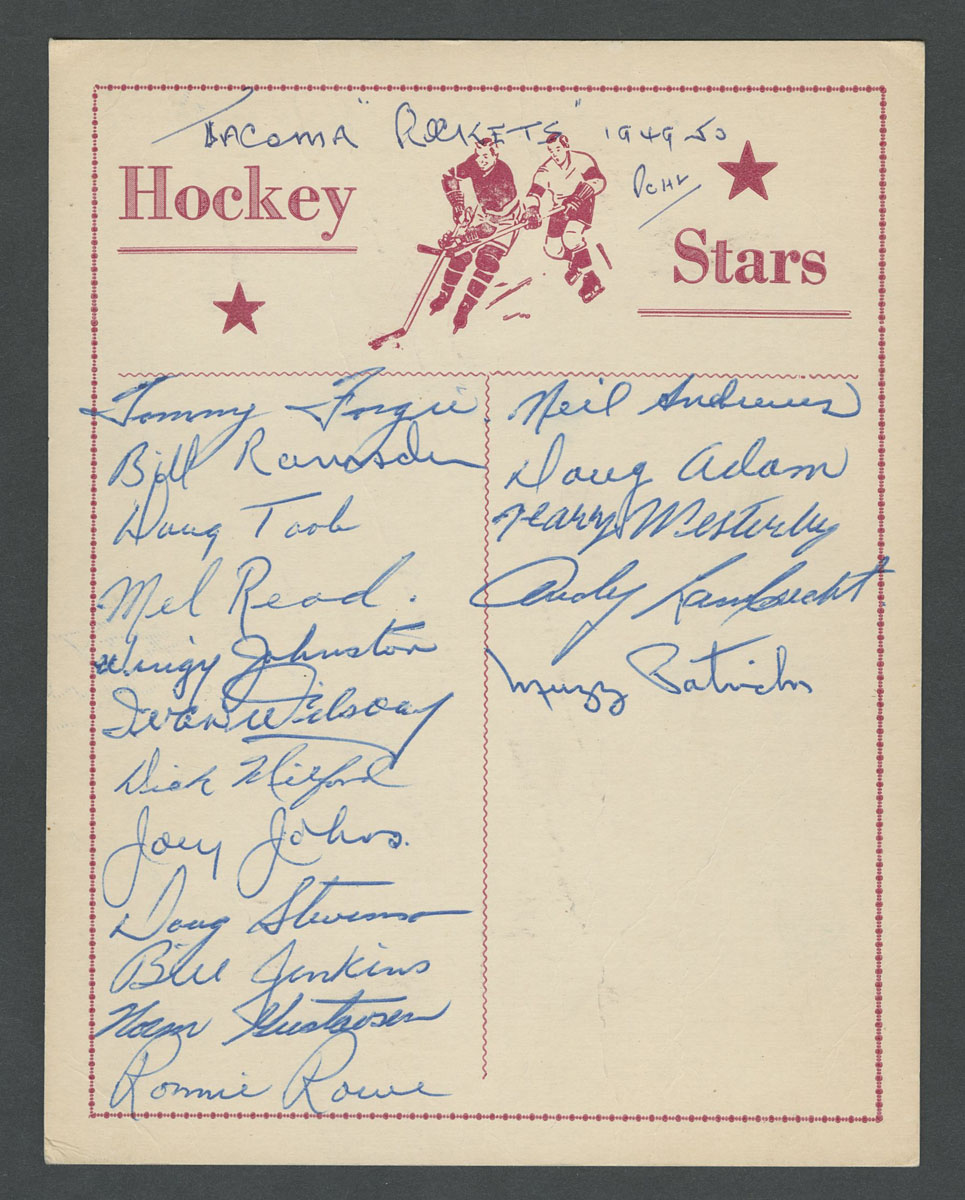 Tacoma "Rockets" 1949 50
PCHL
Hockey
Stars
Tommy Forgie
Bill Ramsden
Doug Toole
Mel Read.
Johnston
Ivan Wilson
Dick Milford
Joey Johns.
Doug Stevenson
Bill Jenkins
Norm Gustavsen
Ronnie Rowe
Neil Andrews
Doug Adam
Harry Westerby
Andy Lambrecht.
Muzz Patrick